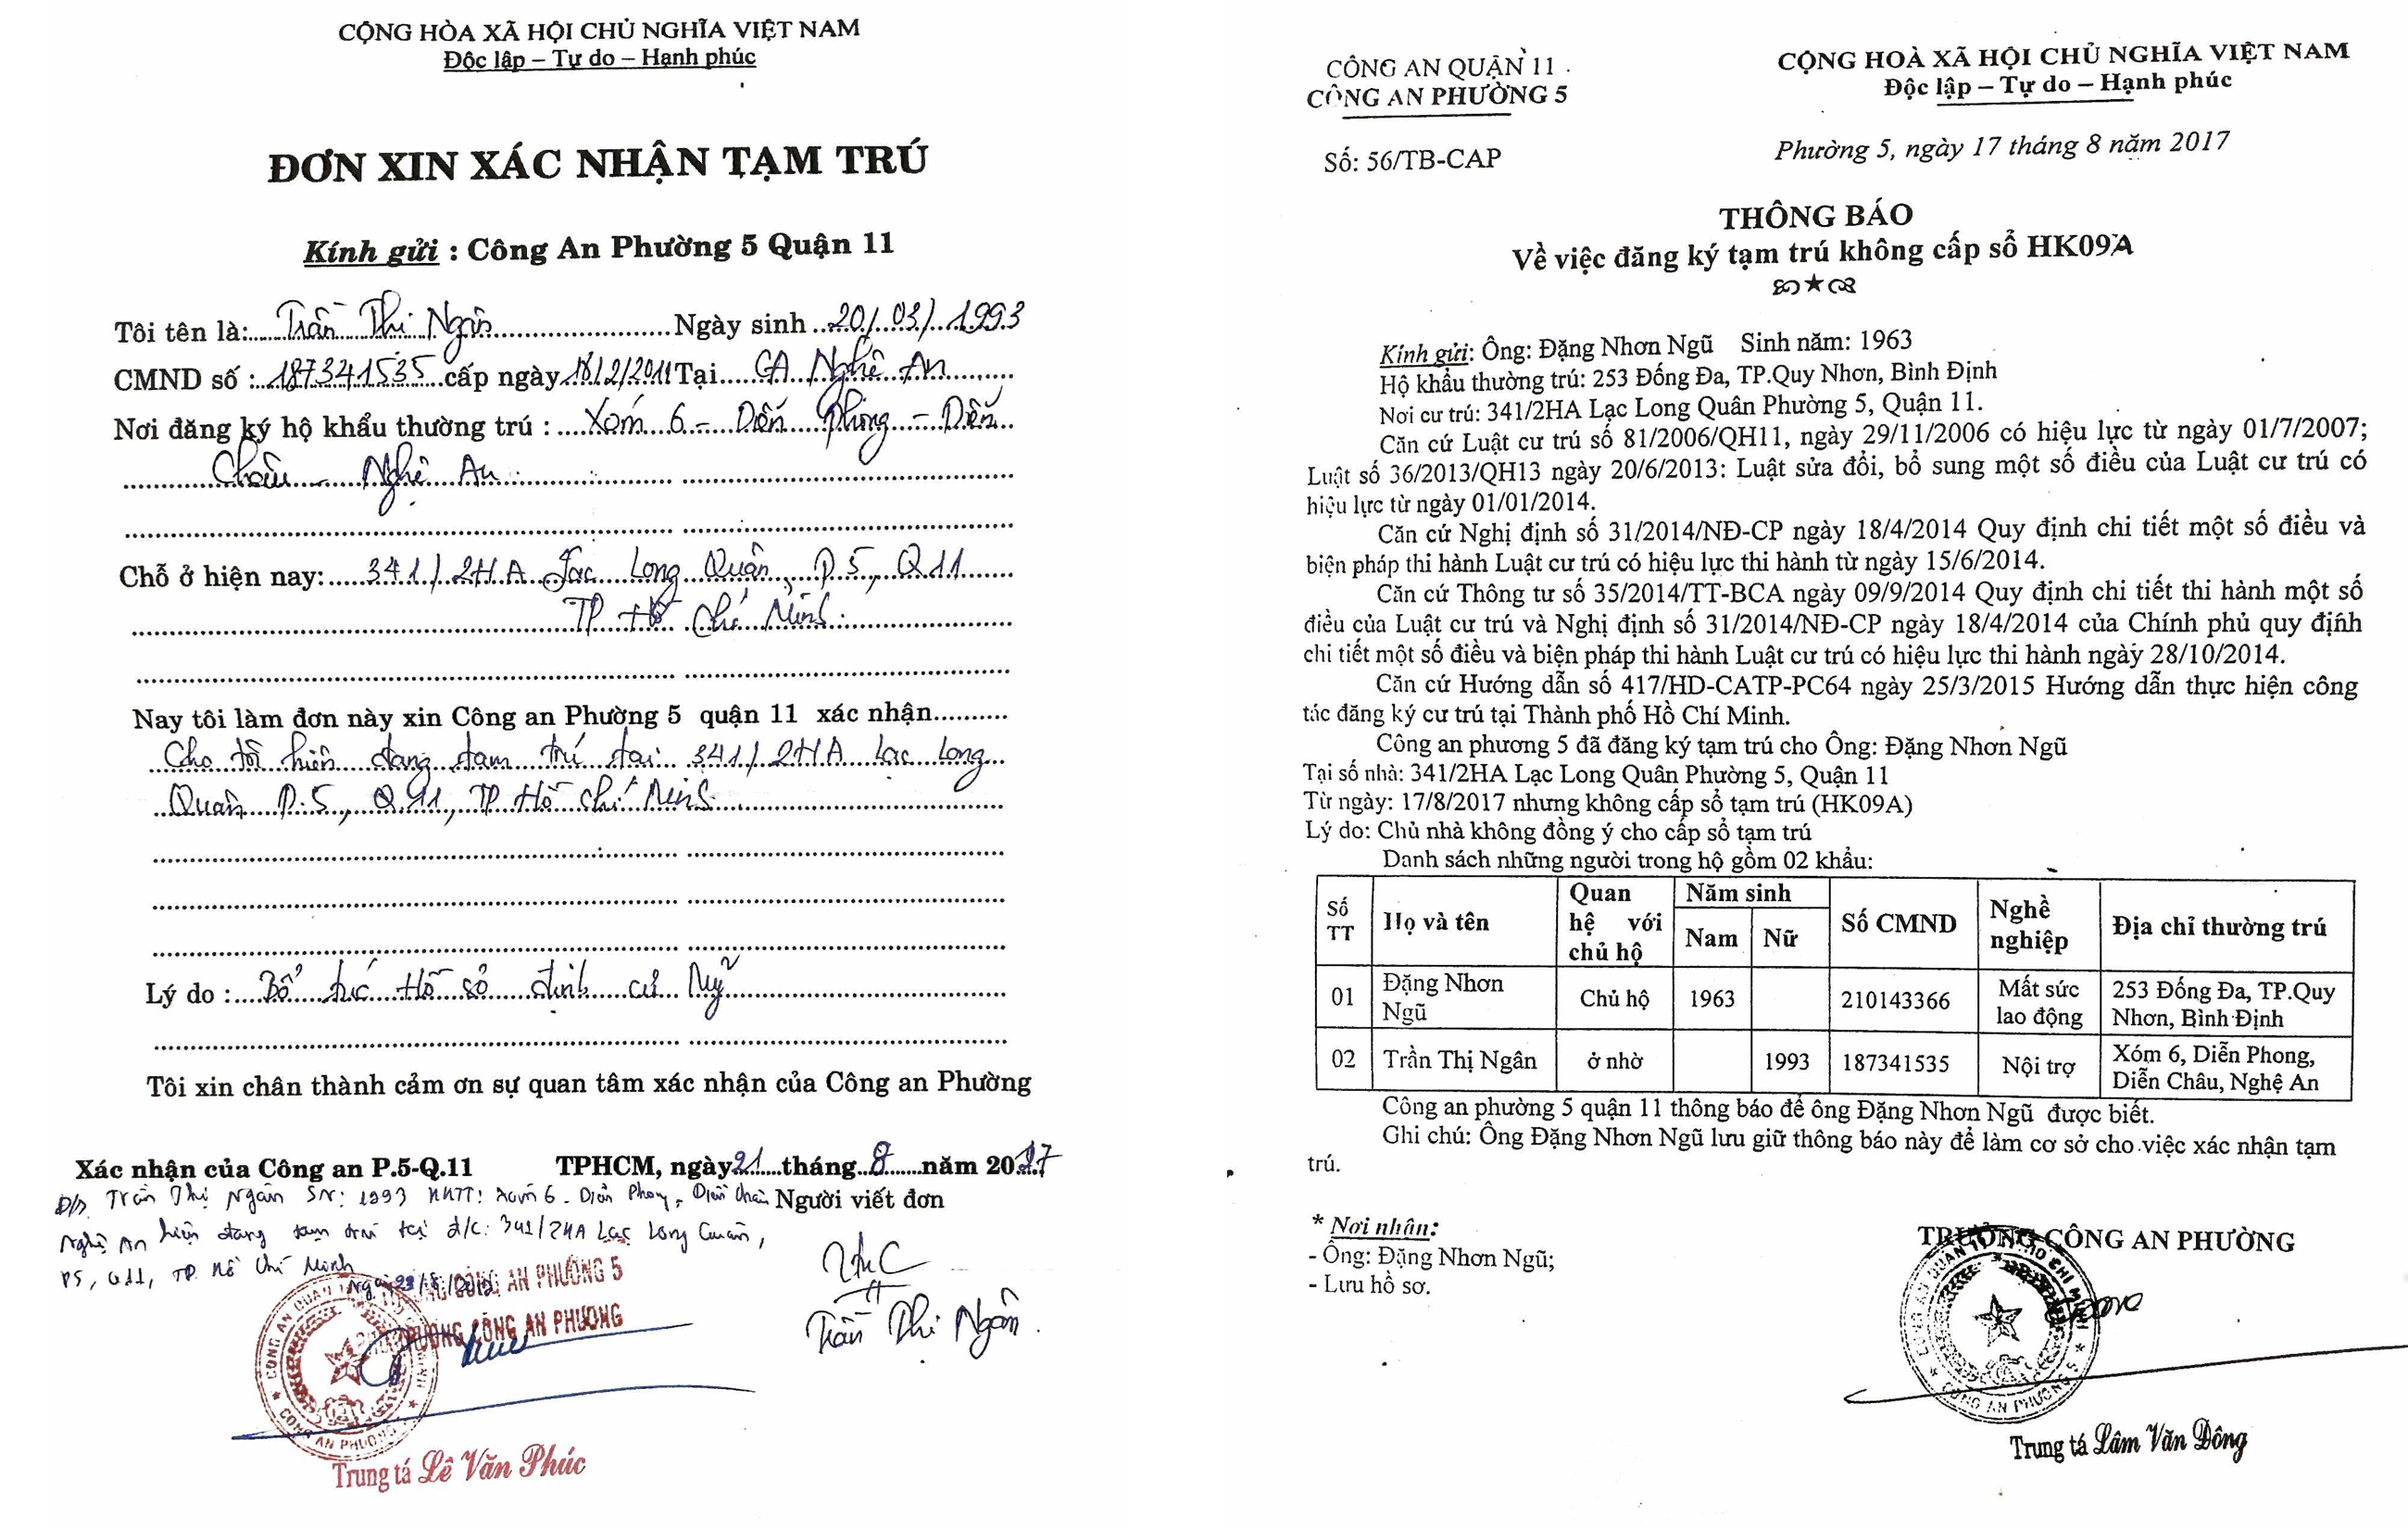 CỘNG HÒA XÃ HỘI CHỦ NGHĨA VIỆT NAM
Độc lập – Tự do – Hạnh phúc
ĐƠN XIN XÁC NHẬN TẠM TRÚ
Kính gửi : Công An Phường 5 Quận 11
Tôi tên là: Trần Thị Ngân Ngày sinh 20/03/1993
CMND số : 187341535 cấp ngày 18/2/2011 Tại CA Nghệ An
Nơi đăng ký hộ khẩu thường trú : Xóm 6 - Diễn Phong - Diễn
Châu - Nghệ An
Chỗ ở hiện nay: 341/2HA Lạc Long Quân, P.5, Q11
TP Hồ Chí Minh.
Nay tôi làm đơn này xin Công an Phường 5 quận 11 xác nhận
Cho tôi hiện đang tạm trú tại 341/2HA Lạc Long
Quân P.5, Q.11, TP Hồ Chí Minh.
Lý do : Bổ túc Hồ sơ định cư Mỹ
Tôi xin chân thành cảm ơn sự quan tâm xác nhận của Công an Phường
Xác nhận của Công an P.5-Q.11 TPHCM, ngày 21 tháng 8 năm 2017
Đ/s Trần Thị Ngân SN: 1993 HKTT: Xóm 6 - Diễn Phong, Diễn Châu Người viết đơn
Nghệ An hiện đang tạm trú tại đ/c: 341/2HA Lạc Long Quân,
P5, Q11, TP. Hồ Chí Minh
CÔNG AN PHƯỜNG 5
TRƯỞNG CÔNG AN PHƯỜNG
Trần Thị Ngân
Trung tá Lê Văn Phúc
CÔNG AN QUẬN 11
CÔNG AN PHƯỜNG 5
Số: 56/TB-CAP
CỘNG HOÀ XÃ HỘI CHỦ NGHĨA VIỆT NAM
Độc lập – Tự do – Hạnh phúc
Phường 5, ngày 17 tháng 8 năm 2017
THÔNG BÁO
Về việc đăng ký tạm trú không cấp sổ HK09A
Kính gửi: Ông: Đặng Nhơn Ngũ Sinh năm: 1963
Hộ khẩu thường trú: 253 Đống Đa, TP.Quy Nhơn, Bình Định
Nơi cư trú: 341/2HA Lạc Long Quân Phường 5, Quận 11.
Căn cứ Luật cư trú số 81/2006/QH11, ngày 29/11/2006 có hiệu lực từ ngày 01/7/2007;
Luật số 36/2013/QH13 ngày 20/6/2013: Luật sửa đổi, bổ sung một số điều của Luật cư trú có
hiệu lực từ ngày 01/01/2014.
Căn cứ Nghị định số 31/2014/NĐ-CP ngày 18/4/2014 Quy định chi tiết một số điều và
biện pháp thi hành Luật cư trú có hiệu lực thi hành từ ngày 15/6/2014.
Căn cứ Thông tư số 35/2014/TT-BCA ngày 09/9/2014 Quy định chi tiết thi hành một số
điều của Luật cư trú và Nghị định số 31/2014/NĐ-CP ngày 18/4/2014 của Chính phủ quy định
chi tiết một số điều và biện pháp thi hành Luật cư trú có hiệu lực thi hành ngày 28/10/2014.
Căn cứ Hướng dẫn số 417/HD-CATP-PC64 ngày 25/3/2015 Hướng dẫn thực hiện công
tác đăng ký cư trú tại Thành phố Hồ Chí Minh.
Công an phương 5 đã đăng ký tạm trú cho Ông: Đặng Nhơn Ngũ
Tại số nhà: 341/2HA Lạc Long Quân Phường 5, Quận 11
Từ ngày: 17/8/2017 nhưng không cấp sổ tạm trú (HK09A)
Lý do: Chủ nhà không đồng ý cho cấp sổ tạm trú
Danh sách những người trong hộ gồm 02 khẩu:
Số TT Họ và tên Quan hệ với chủ hộ Năm sinh Nam Nữ Số CMND Nghề nghiệp Địa chỉ thường trú
01 Đặng Nhơn Ngũ Chủ hộ 1963 210143366 Mất sức lao động 253 Đống Đa, TP.Quy Nhơn, Bình Định
02 Trần Thị Ngân ở nhờ 1993 187341535 Nội trợ Xóm 6, Diễn Phong, Diễn Châu, Nghệ An
Công an phường 5 quận 11 thông báo để ông Đặng Nhơn Ngũ được biết.
Ghi chú: Ông Đặng Nhơn Ngũ lưu giữ thông báo này để làm cơ sở cho việc xác nhận tạm
trú.
* Nơi nhận:
- Ông: Đặng Nhơn Ngũ;
- Lưu hồ sơ.
TRƯỞNG CÔNG AN PHƯỜNG
Trung tá Lâm Văn Đông